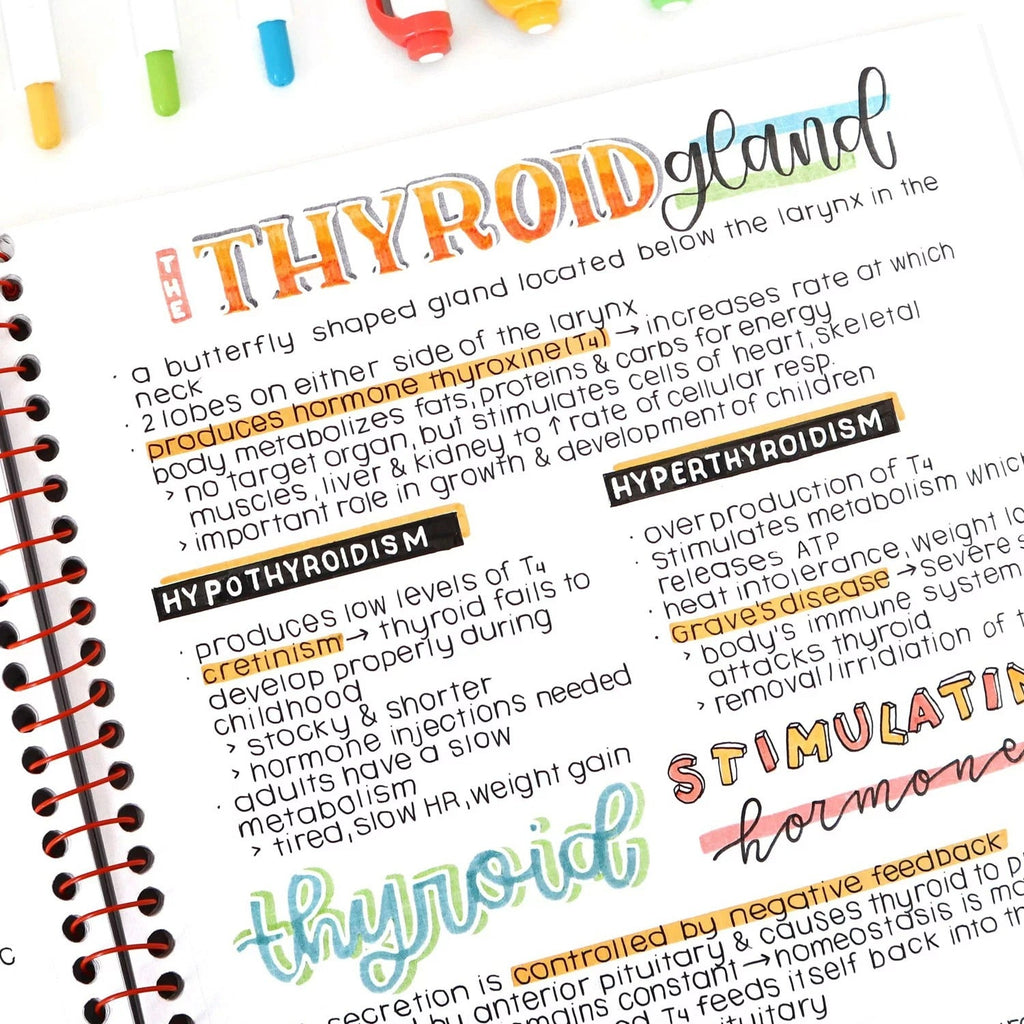 THE THYROID gland
· a butterfly shaped gland located below the larynx in the
neck
· 2 lobes on either side of the larynx
· produces hormone thyroxine (T4) → increases rate at which
body metabolizes fats, proteins & carbs for energy
> no target organ, but stimulates cells of heart, skeletal
muscles, liver & kidney to ↑ rate of cellular resp.
> important role in growth & development of children
HYPOTHYROIDISM
· produces low levels of T4
· cretinism → thyroid fails to
develop properly during
childhood
> stocky & shorter
> hormone injections needed
· adults have a slow
metabolism
> tired, slow HR, weight gain
HYPERTHYROIDISM
· overproduction of T4
stimulates metabolism which
releases ATP
· heat intolerance, weight
· Grave's disease → severe
> body's immune system
attacks thyroid
> removal/irridiation of
thyroid
STIMULATIN
hormone
secretion is controlled by negative feedback
by anterior pituitary, & causes thyroid to
remains constant → homeostasis is
T4 feeds itself back into
pituitary